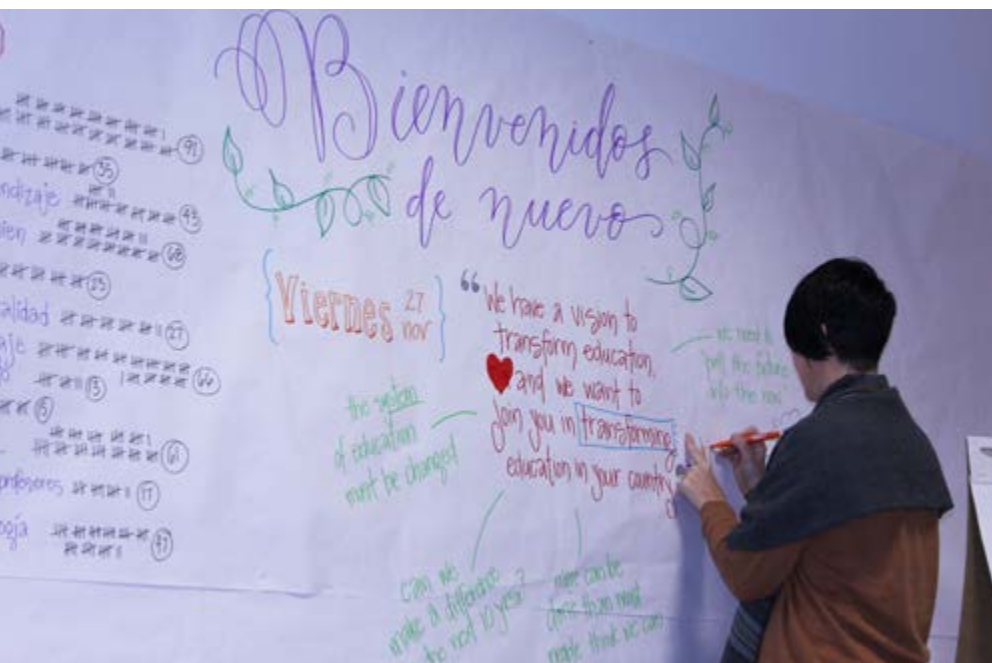 Bienvenidos
de nuevo
91
35
ndizaje 43
ien 68
25
alidad 27
aje 66
13
5
61
profesores 17
ogía 47
Viernes 27
nov
“We have a vision to
transform education,
and we want to
join you in transforming
education in your country
the system
of education
must be changed
we need to
pull the future
into the now
can we
make a difference
the next 10 years?
more can be
done than most
people think we can